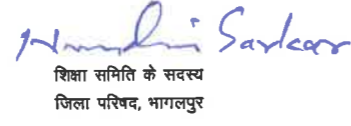 Sarkar
शिक्षा समिति के सदस्य
जिला परिषद, भागलपुर